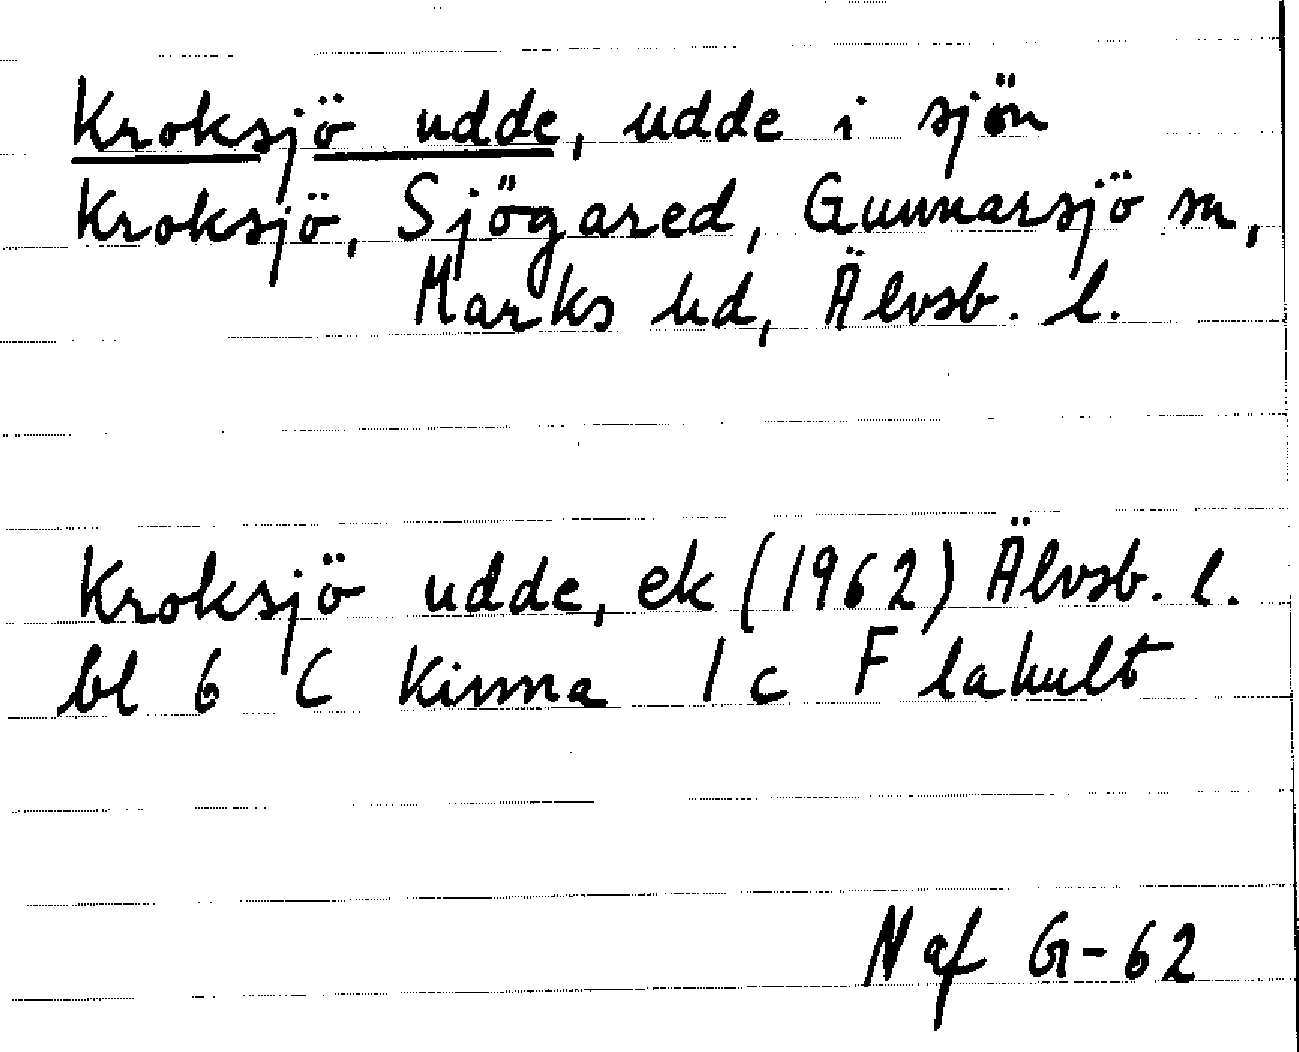 Kroksjö udde, udde i sjön
Kroksjö, Sjögared, Gunnarsjö sn,
Marks hd, Älvsb. l.
Kroksjö udde, ek (1962) Älvsb. l.
bl 6 C Kinna 1 c Flahult
Naf G-62